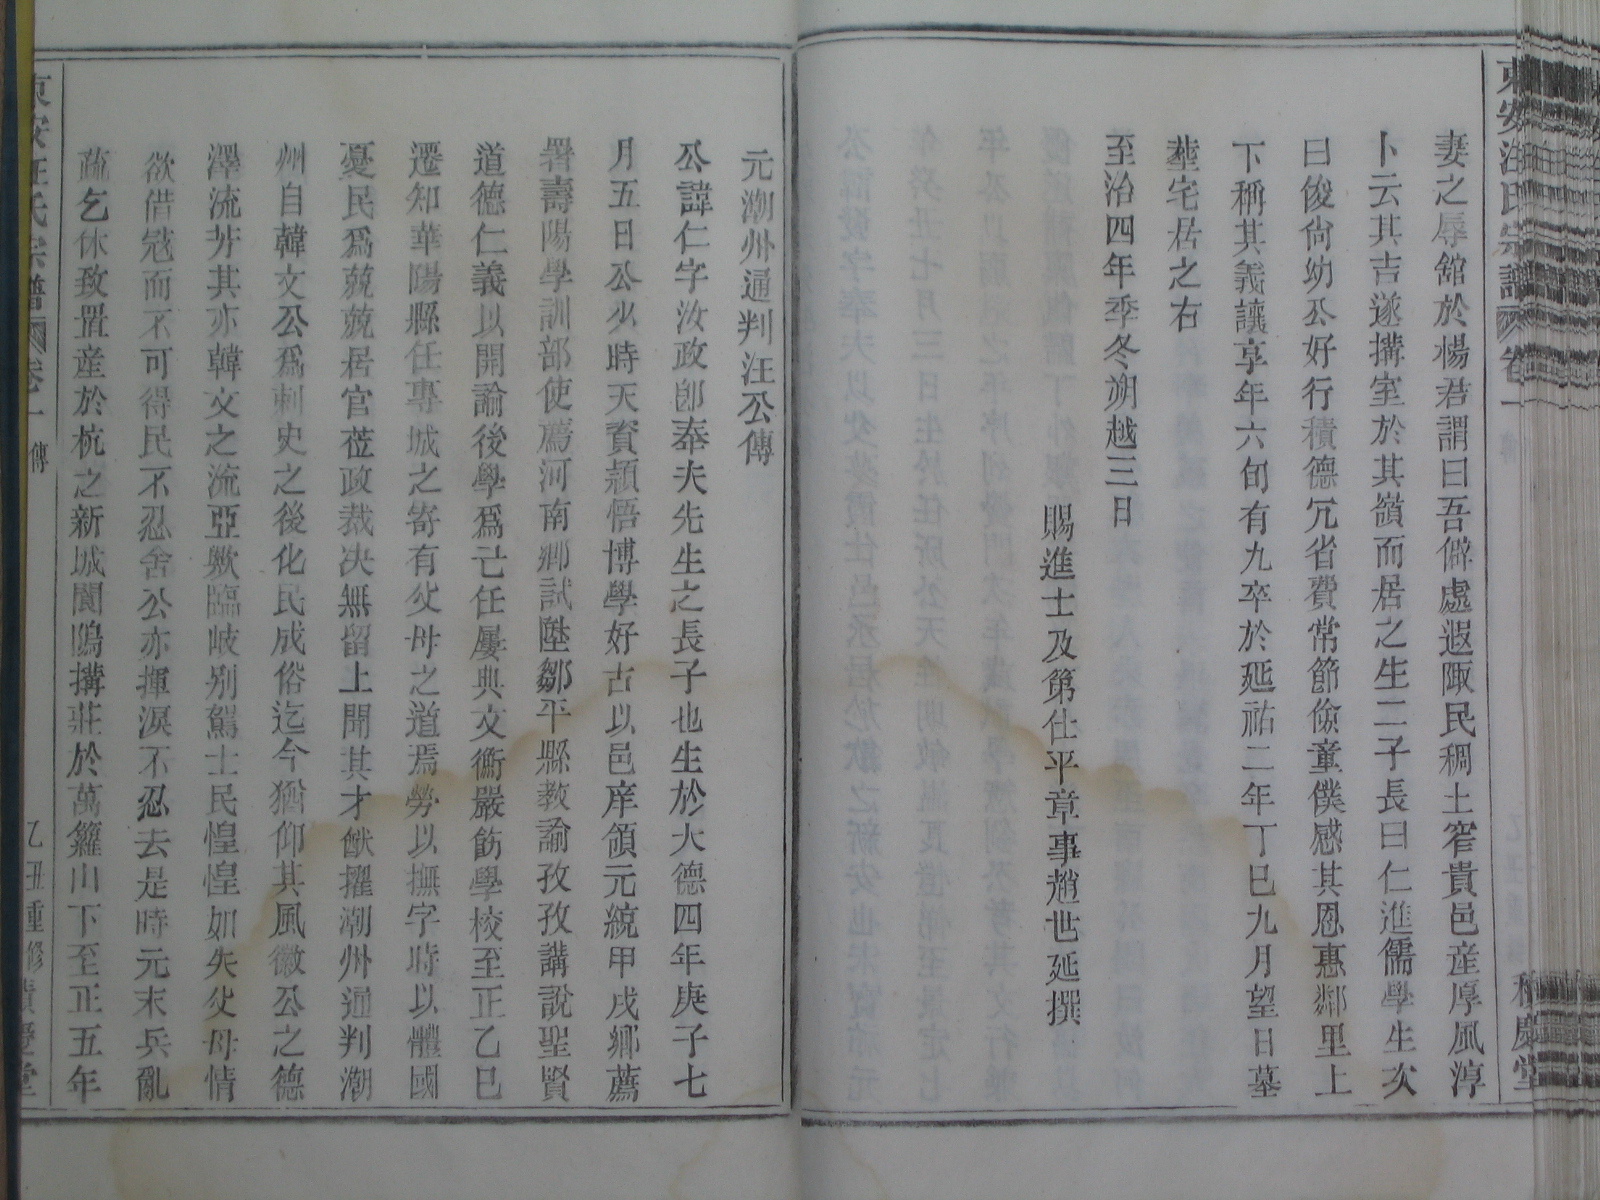 東安汪氏宗譜 卷一
積慶堂
妻之辱舘於楊君謂曰吾僻處遐陬民稠土窄貴邑産厚風淳
卜云其吉遂搆室於其嶺而居之生二子長曰仁進儒學生次
曰俊尙幼公好行積德冗省費常節儉童僕感其恩惠鄰里上
下稱其義讓享年六旬有九卒於延祐二年丁巳九月望日墓
塟宅居之右
至治四年季冬朔越三日
賜進士及第仕平章事趙世延撰
元潮州通判汪公傳
公諱仁字汝政卽奉夫先生之長子也生於大德四年庚子七
月五日公少時天資穎悟博學好古以邑庠領元統甲戌鄕薦
署壽陽學訓部使薦河南鄕試陞鄒平縣教諭孜孜講說聖賢
道德仁義以開諭後學爲己任屢典文衡嚴飭學校至正乙巳
遷知華陽縣任專城之寄有父母之道焉勞以撫字時以體國
憂民爲兢兢居官莅政裁决無留上聞其才猷擢潮州通判潮
州自韓文公爲刺史之後化民成俗迄今猶仰其風徽公之德
澤流芳其亦韓文之流亞歟臨岐别駕士民惶惶如失父母情
欲借冦而不可得民不忍舍公亦揮淚不忍去是時元末兵亂
疏乞休致置産於杭之新城闤鵰搆莊於萬籮山下至正五年
東安汪氏宗譜 卷一 傳
乙丑重修 積慶堂